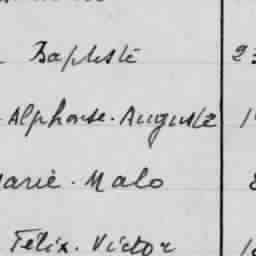 Baptiste 2
Alphonse. Auguste 1
Marie. Malo
Félix. Victor 1